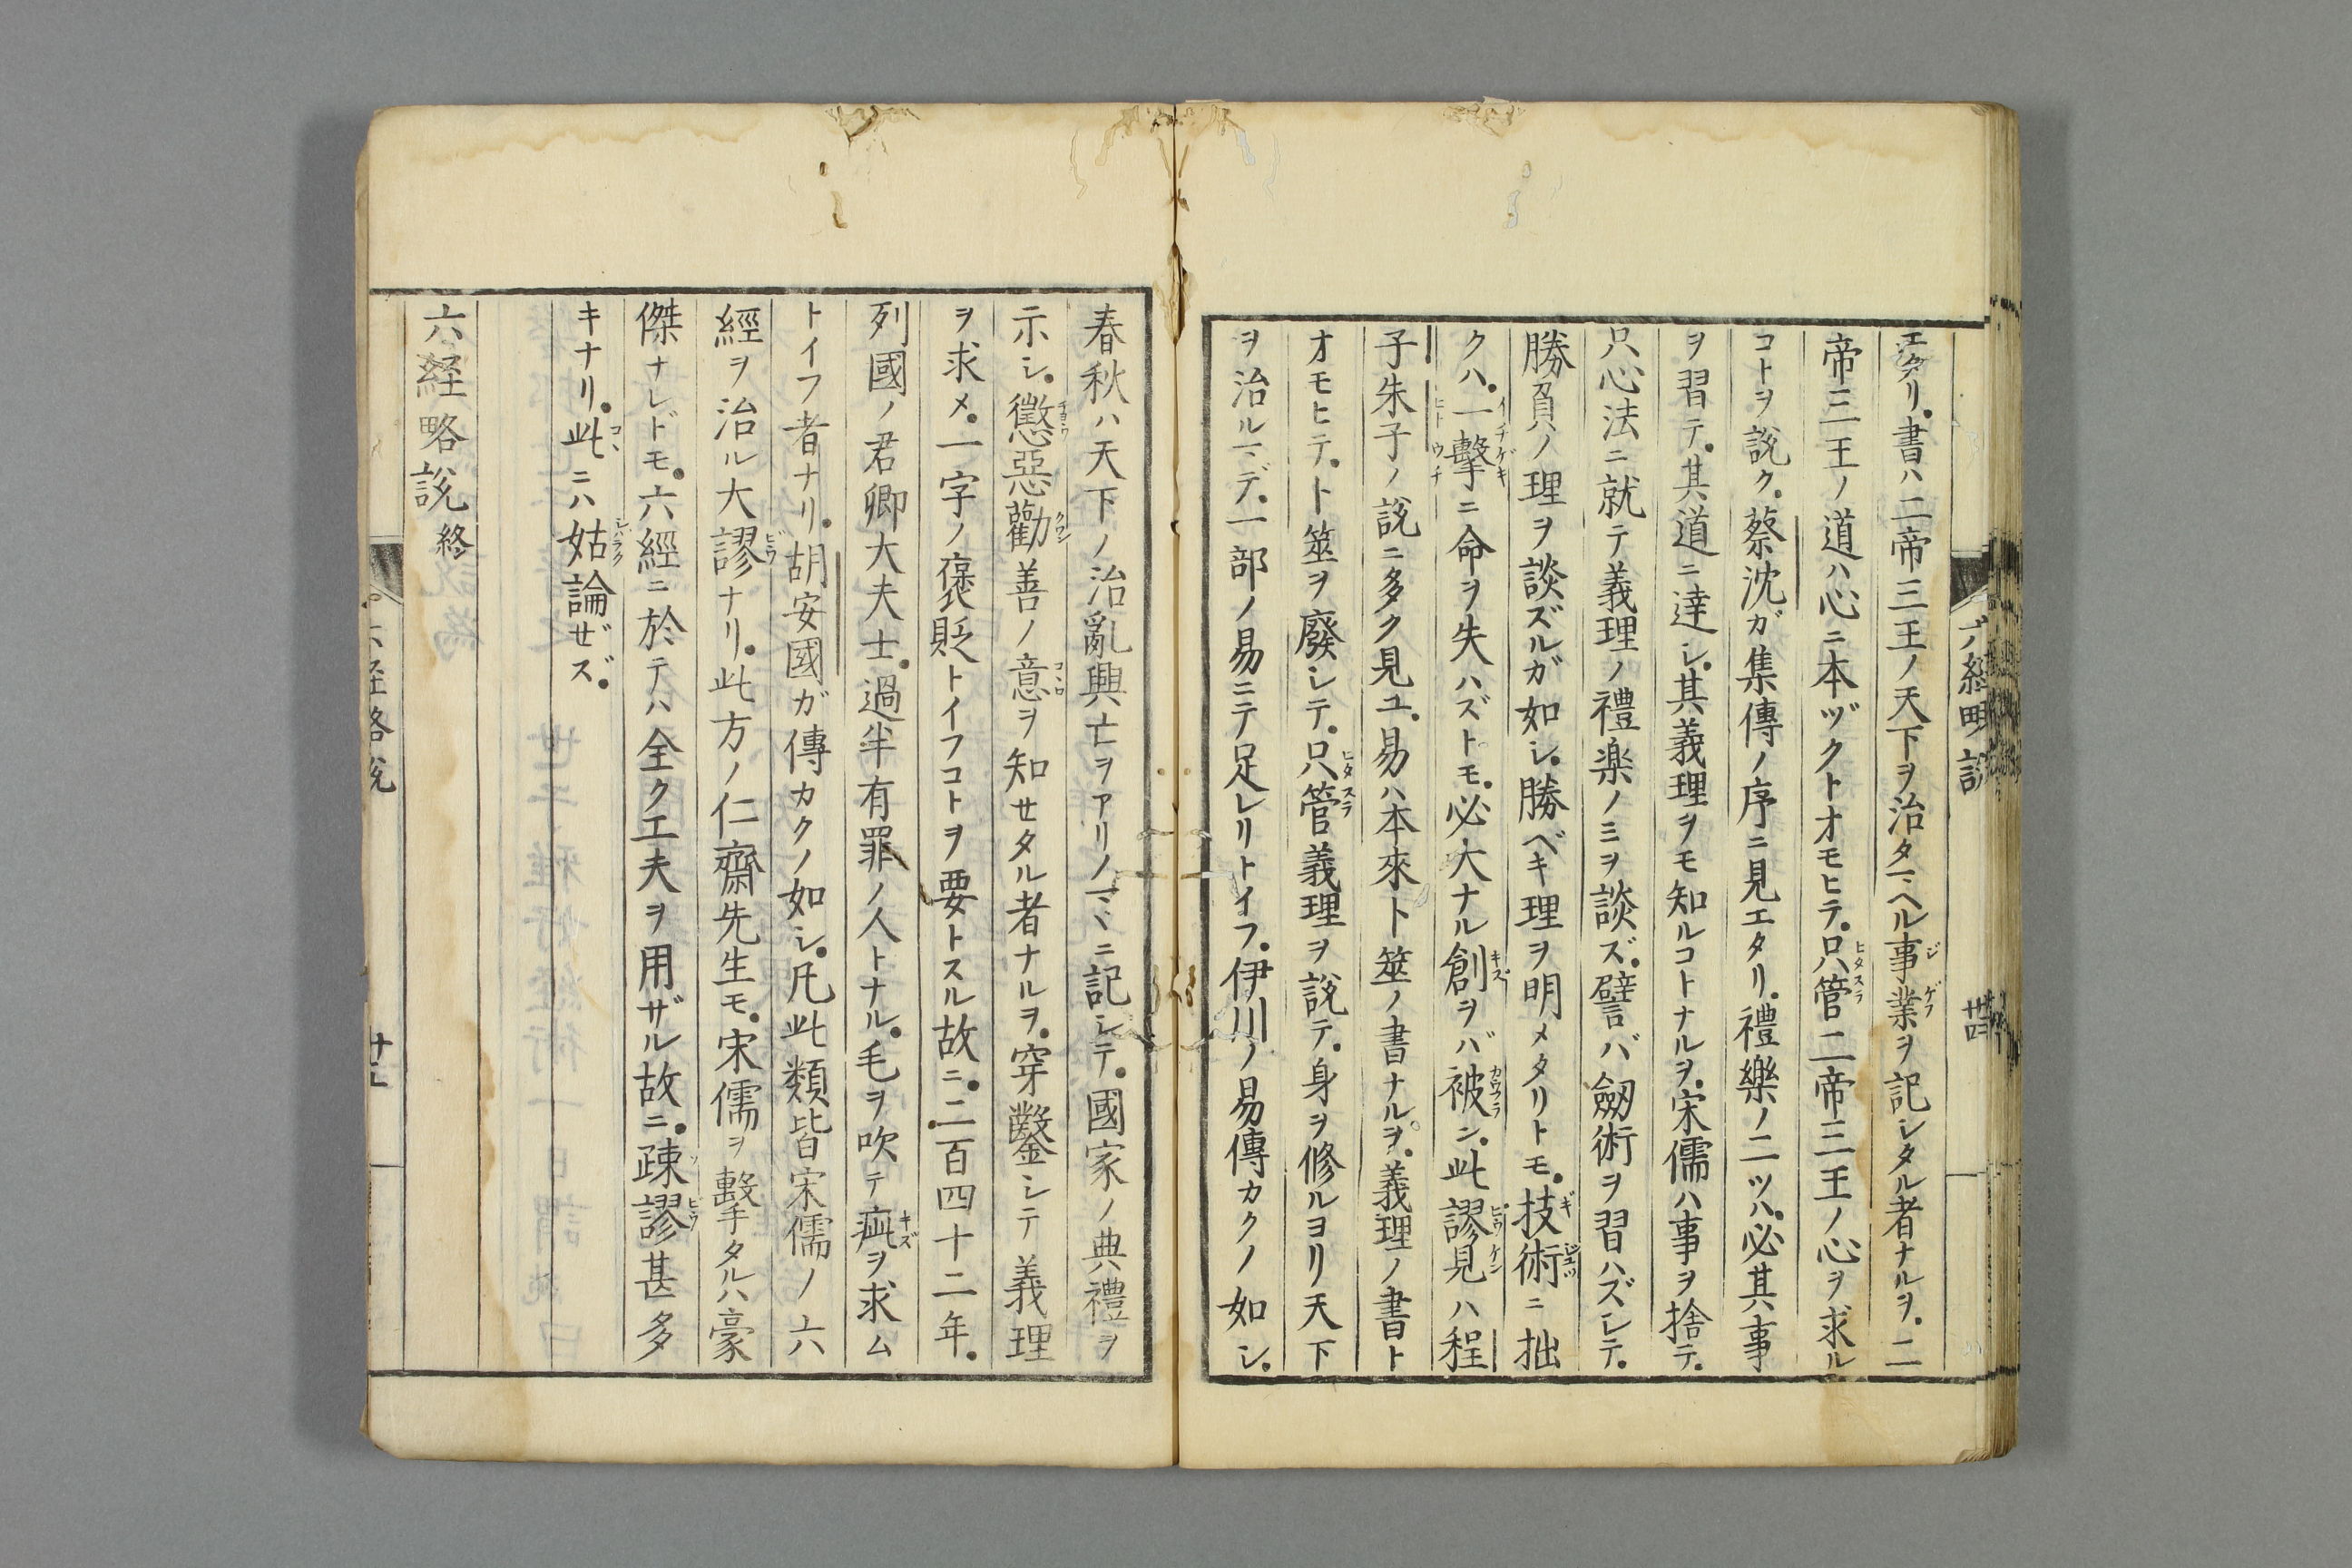 エタリ。書ハ二帝三王ノ天下ヲ治タマヘル事業ヲ記シタル者ナルヲ。二
帝三王ノ道ハ心ニ本ヅクトオモヒテ。只管二帝三王ノ心ヲ求ル
コトヲ說ク。蔡沈ガ集傳ノ序ニ見エタリ。禮樂ノ二ツハ。必其事
ヲ習テ。其道ニ達シ。其義理ヲモ知ルコトナルヲ。宋儒ハ事ヲ捨テ。
只心法ニ就テ義理ノ禮楽ノミヲ談ズ。譬バ劒術ヲ習ハズシテ。
勝負ノ理ヲ談ズルガ如シ。勝ベキ理ヲ明メタリトモ。技術ニ拙
クハ。一擊ニ命ヲ失ハズトモ。必大ナル創ヲバ被ン。此謬見ハ程
子朱子ノ說ニ多ク見ユ。易ハ本來卜筮ノ書ナルヲ。義理ノ書ト
オモヒテ。卜筮ヲ廢シテ。只管義理ヲ說テ。身ヲ修ルヨリ天下
ヲ治ルマデ。一部ノ易ニテ足レリトイフ。伊川ノ易傳カクノ如シ。
六經略說
廿四
春秋ハ天下ノ治亂興亡ヲアリノマヽニ記シテ。國家ノ典禮ヲ
示シ。懲惡勸善ノ意ヲ知セタル者ナルヲ。穿鑿シテ義理
ヲ求メ。一字ノ褒貶トイフコトヲ要トスル故ニ。二百四十二年。
列國ノ君卿大夫士。過半有罪ノ人トナル。毛ヲ吹テ疵ヲ求ム
トイフ者ナリ。胡安國ガ傳カクノ如シ。凡此類皆宋儒ノ六
經ヲ治ル大謬ナリ。此方ノ仁齋先生モ。宋儒ヲ擊タルハ豪
傑ナレドモ。六經ニ於テハ全ク工夫ヲ用ザル故ニ。疎謬甚多
キナリ。此ニハ姑論ゼズ。
六経略說終
六經略說